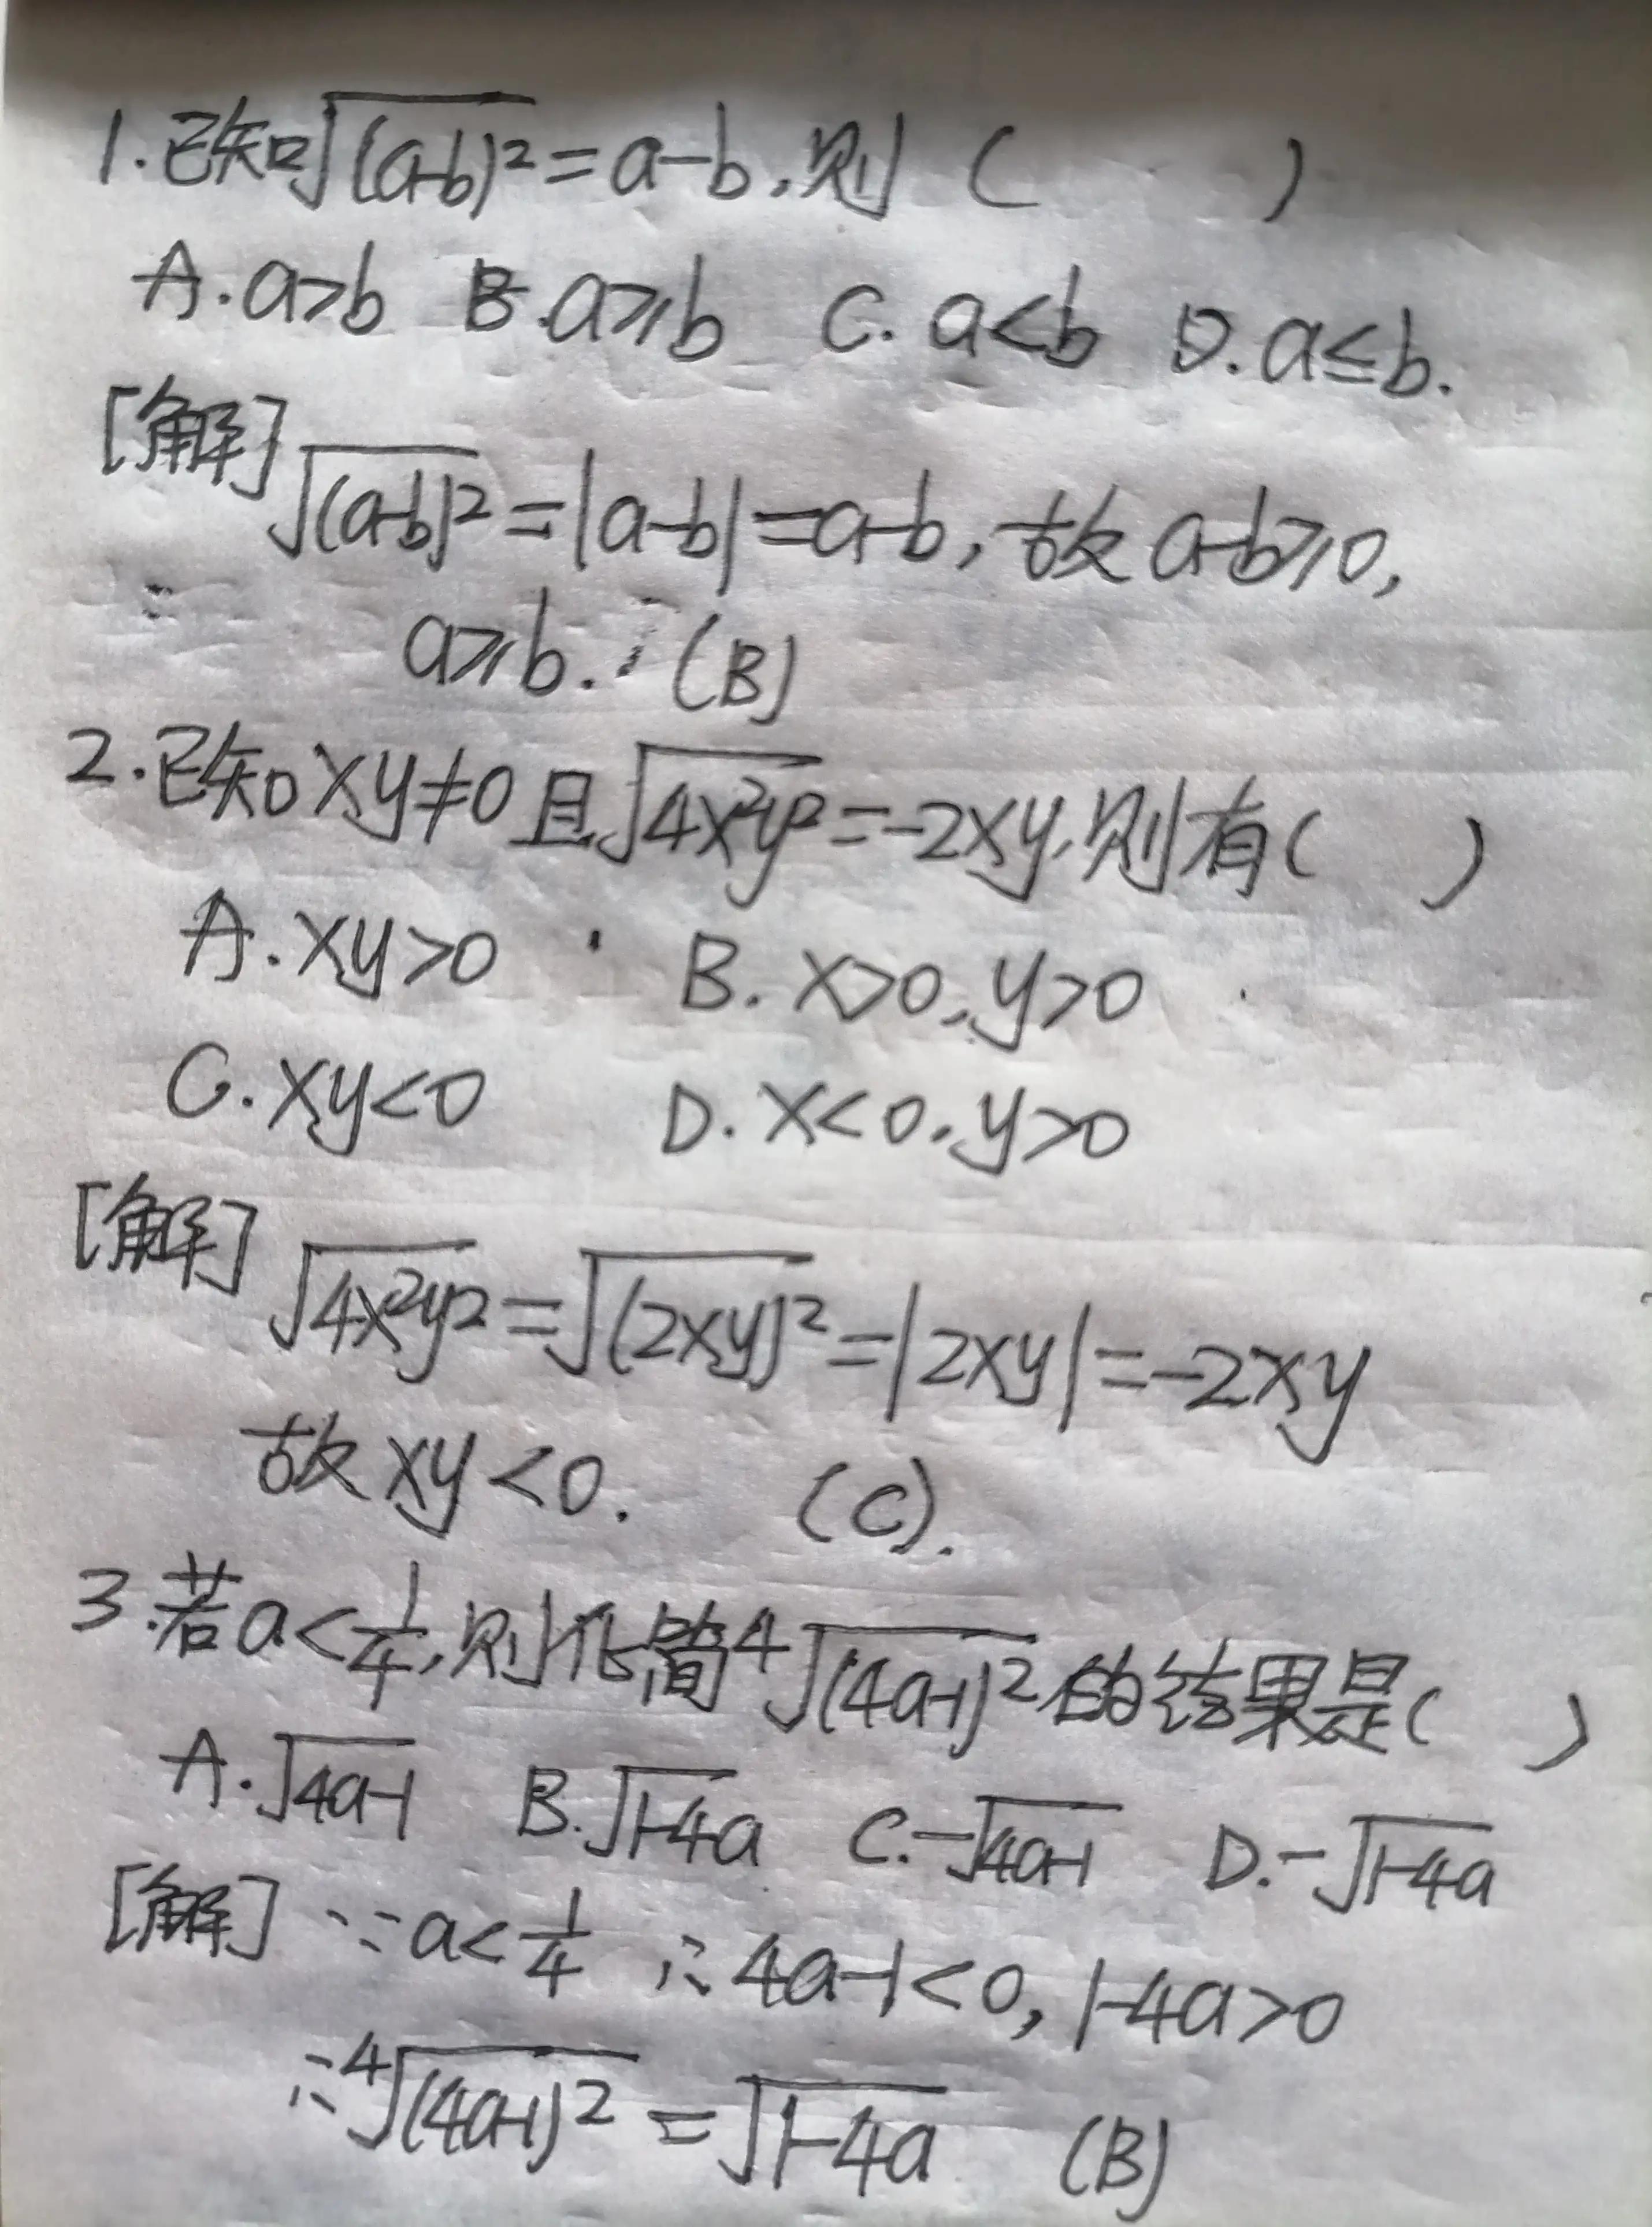 1.已知√(a-b)²=a-b,则( )
A.a>b B.a≥b C.a<b D.a≤b.
[解]√(a-b)²=|a-b|=a-b,故a-b≥0,
a≥b. (B)
2.已知xy≠0且√4x²y²=-2xy,则有( )
A.xy>0 B.x>0,y>0
C.xy<0 D.x<0,y>0
[解]√4x²y²=√(2xy)²=|2xy|=-2xy
故xy<0. (C).
3.若a<1/4,则化简⁴√(4a-1)²的结果是( )
A.√4a-1 B.√1-4a C.-√4a-1 D.-√1-4a
[解]∵a<1/4 ∴4a-1<0,1-4a>0
∴⁴√(4a-1)²=√1-4a (B)